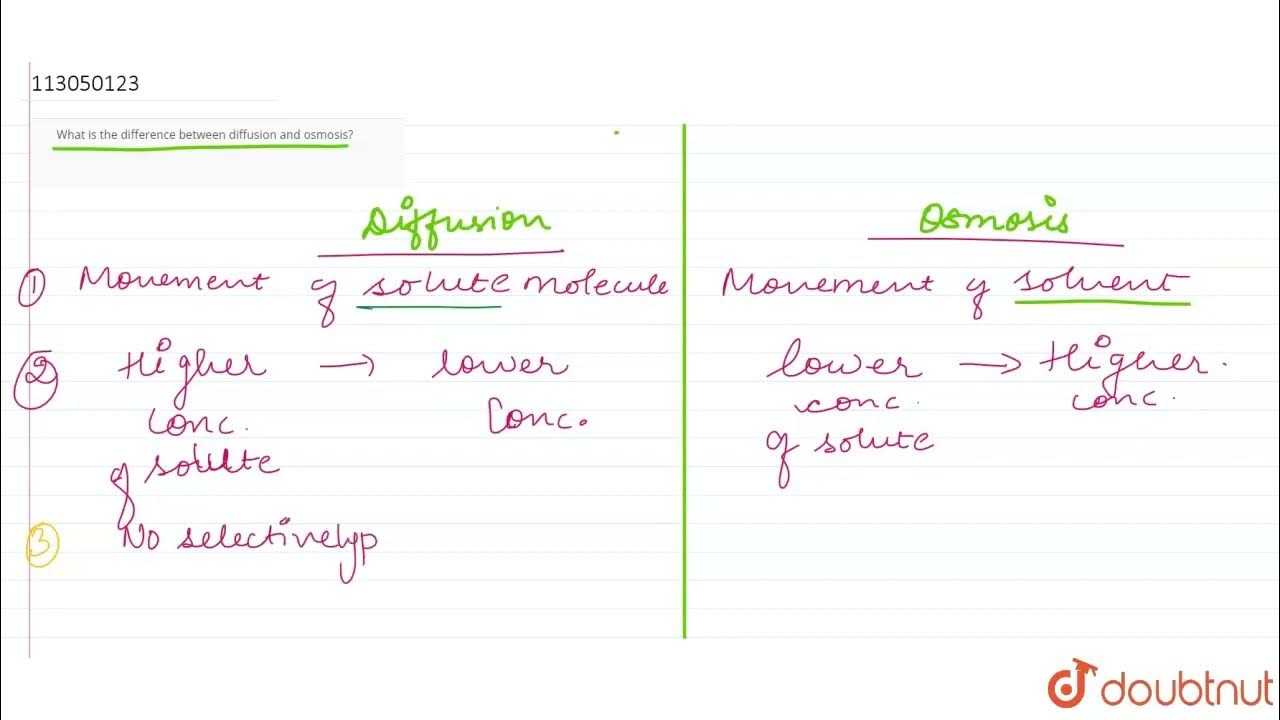 113050123
What is the difference between diffusion and osmosis?
Diffusion
Osmosis
① Movement of solute molecule
Movement of solvent
② Higher → lower
conc. Conc.
of solute
lower → Higher.
conc. conc.
of solute
③ No selectivelyp
doubtnut